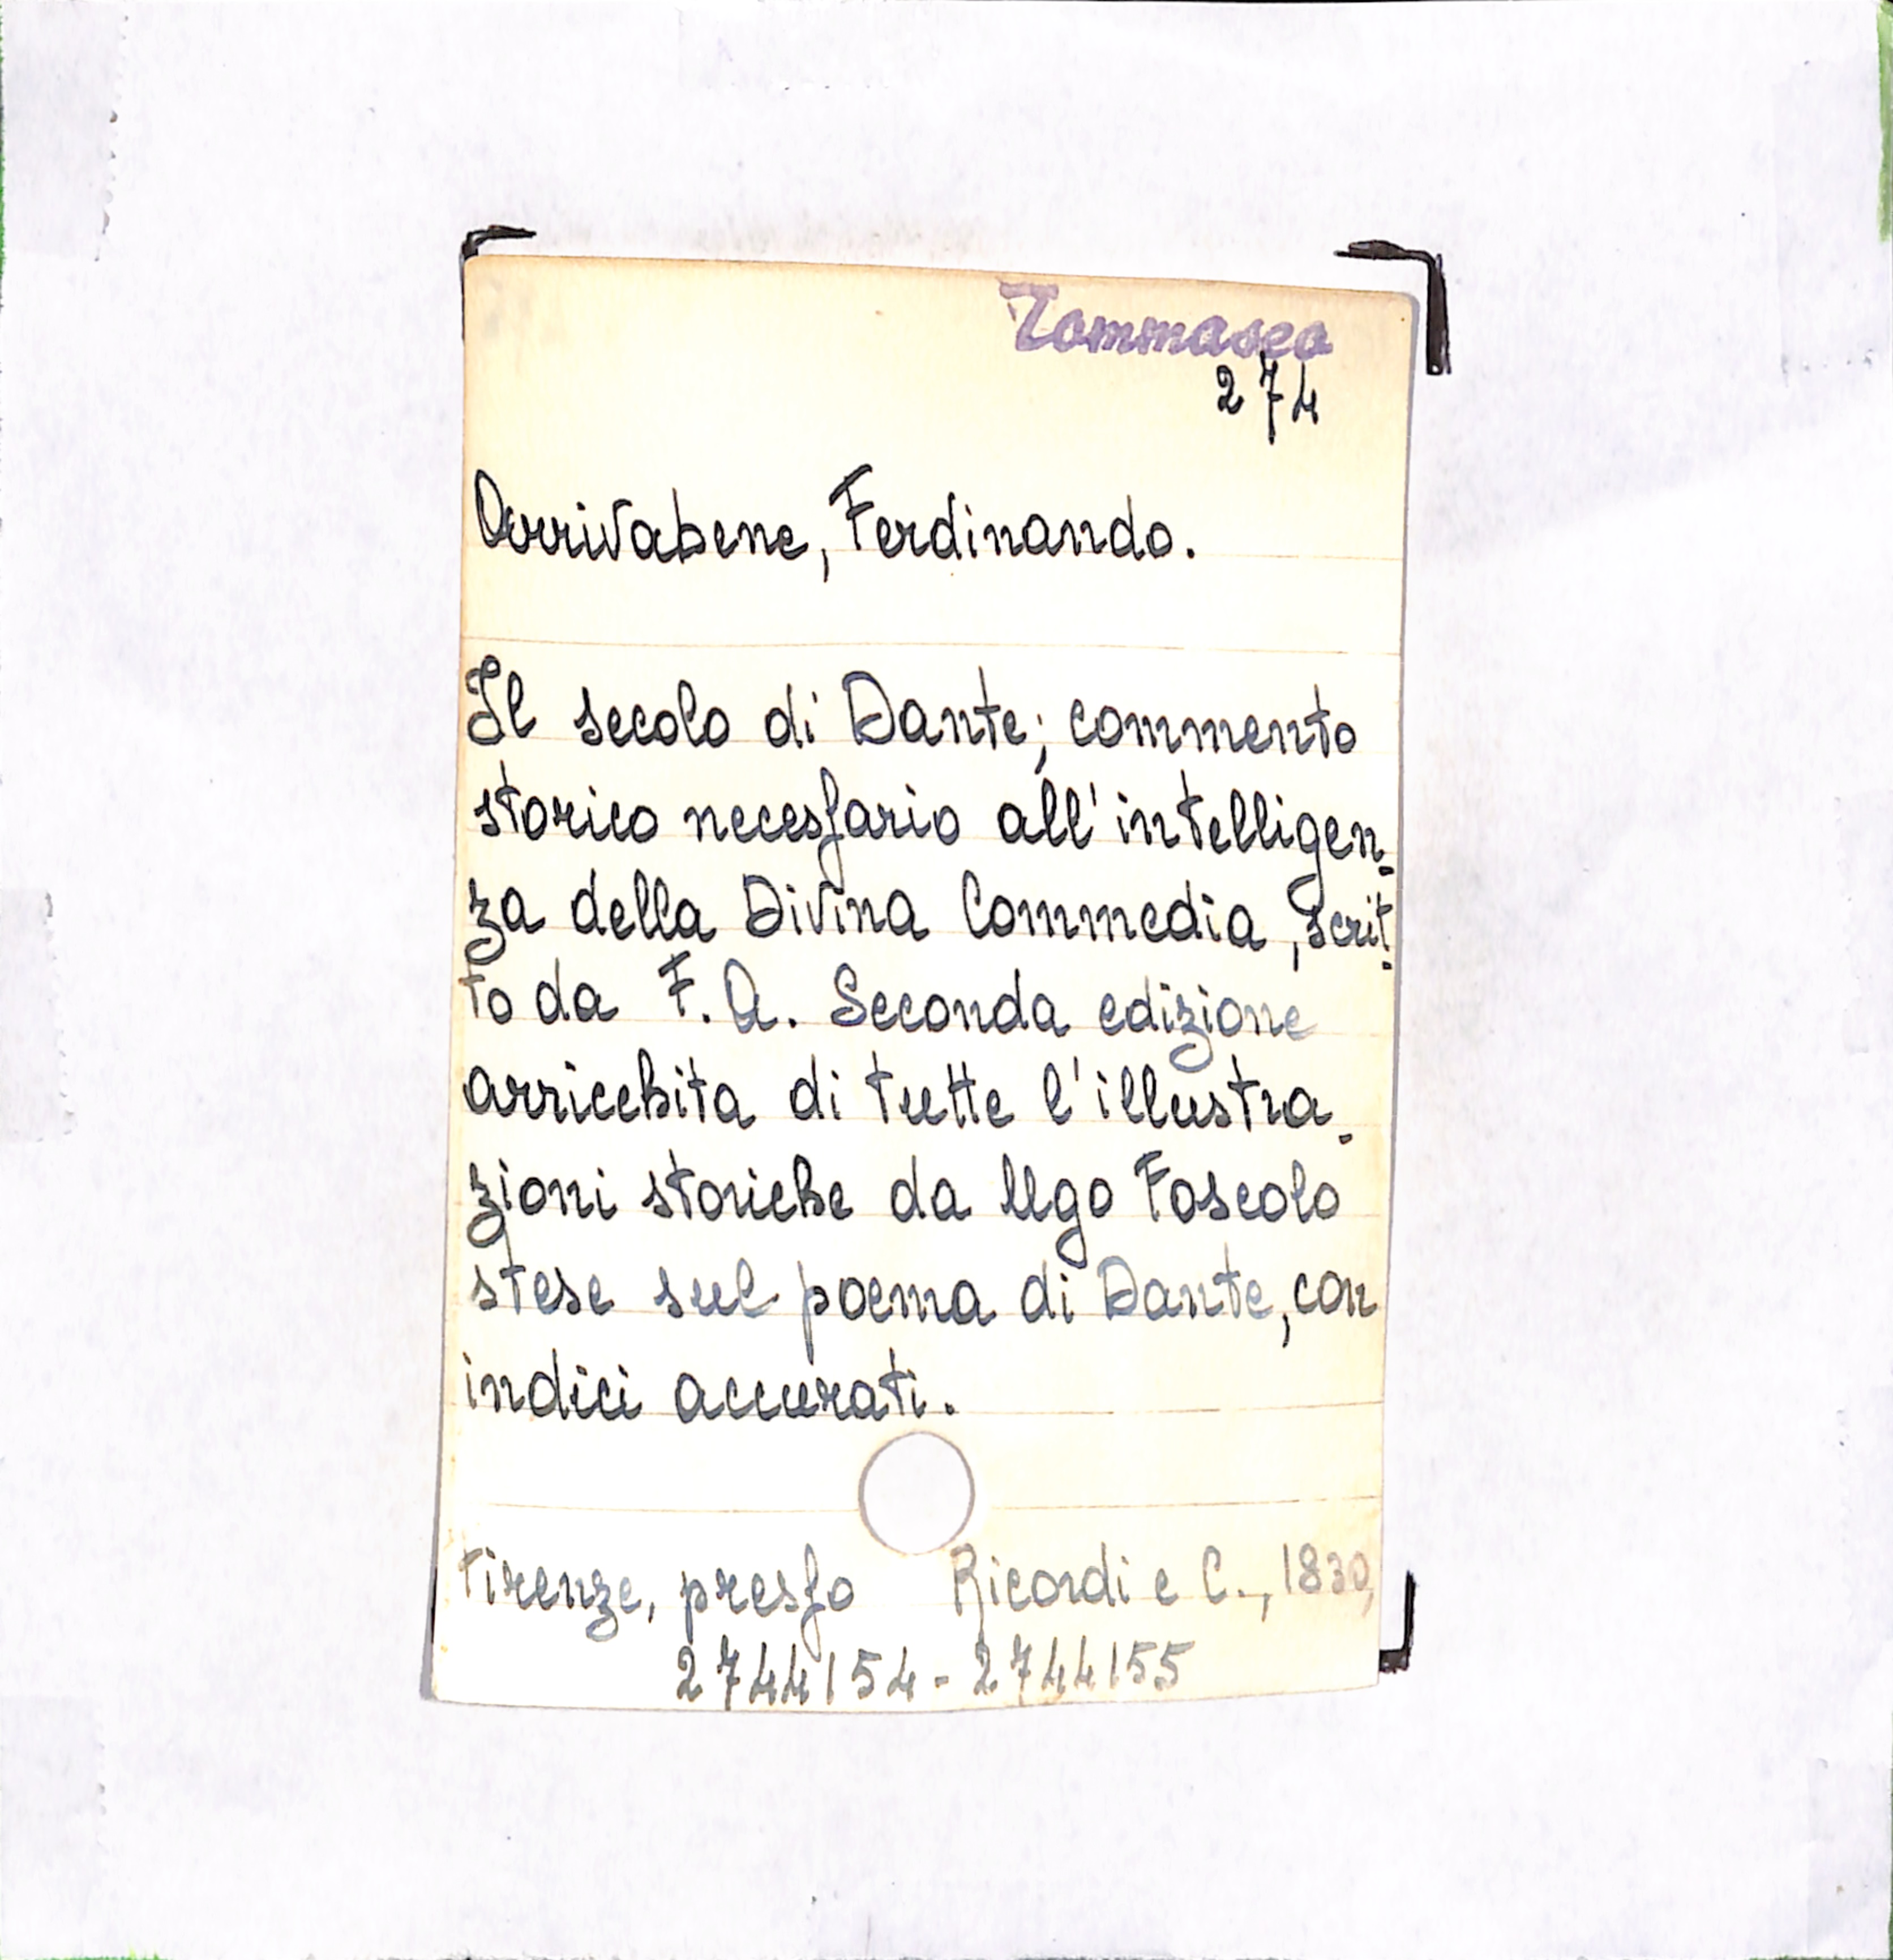 Tommaseo
274
Arrivabene, Ferdinando.
Il secolo di Dante; commento
storico necesſario all'intelligen-
za della Divina Commedia, scrit-
to da F. A. Seconda edizione
arricchita di tutte l'illustra-
zioni storiche da Ugo Foscolo
stese sul poema di Dante, con
indici accurati.
Firenze, presſo Ricordi e C., 1830,
2744154-2744155